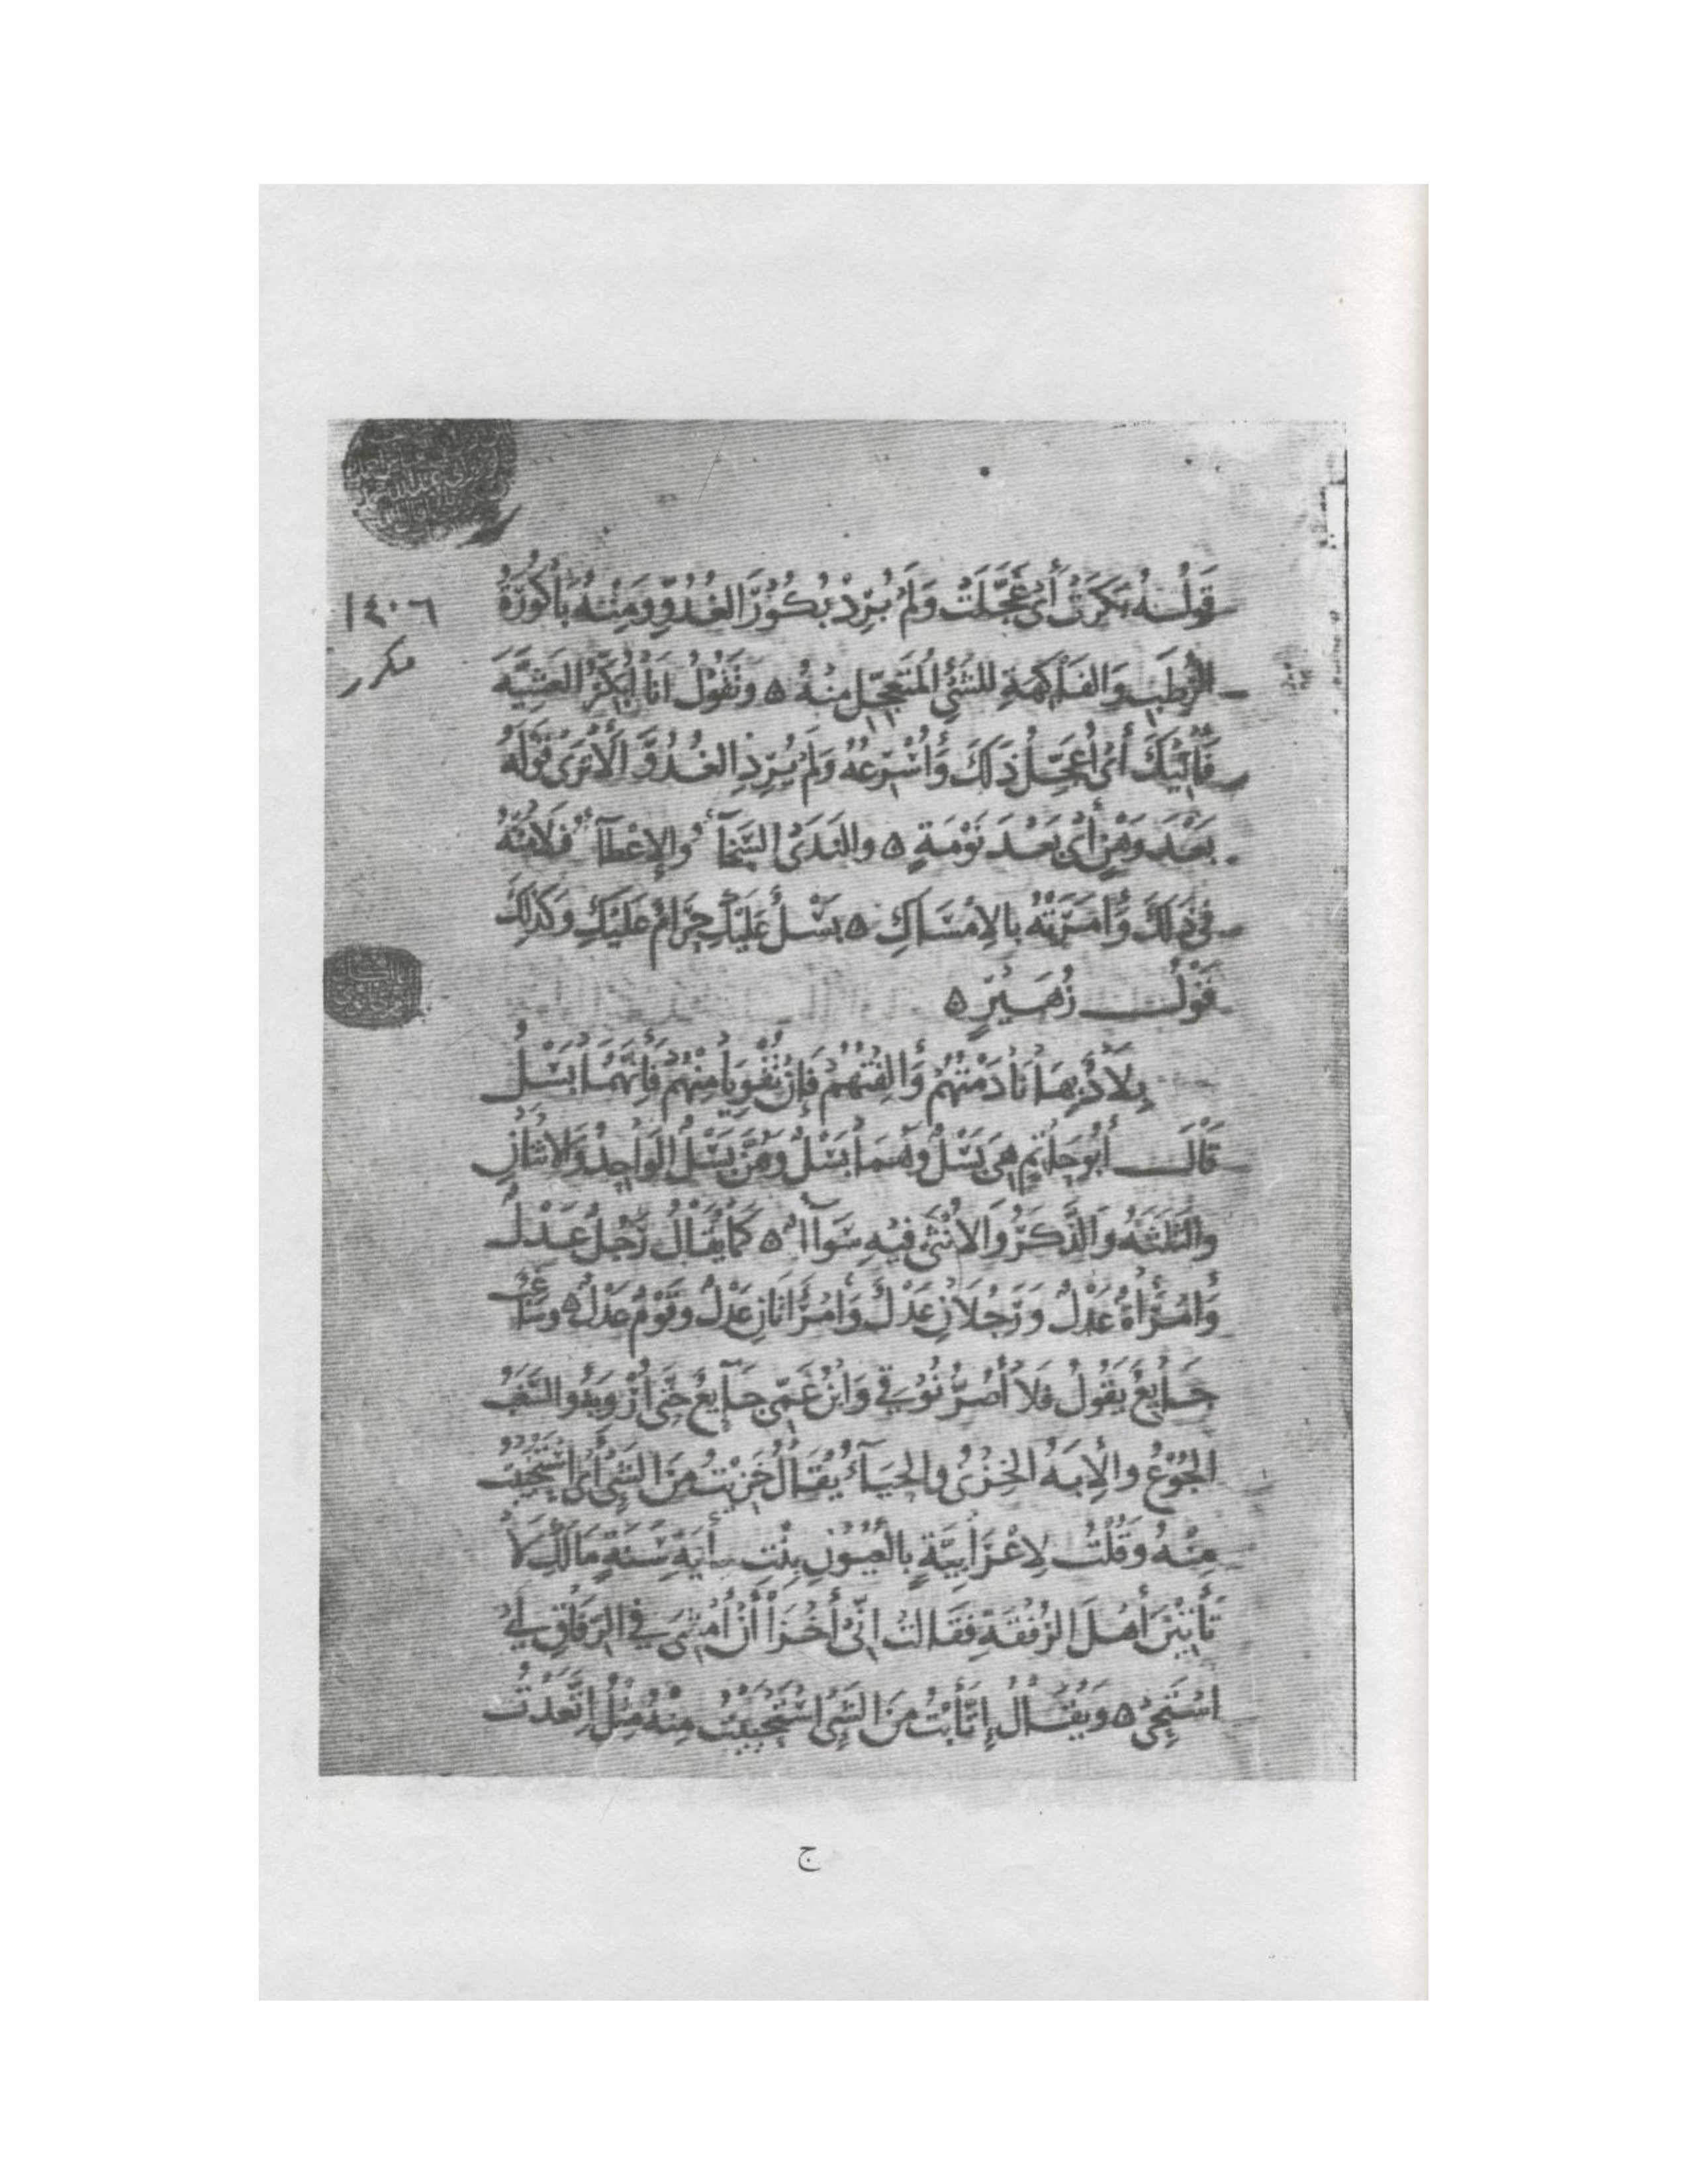 قَوْلُهُ بَكَرَتْ أَىْ عَجَّلَتْ وَلَمْ يُرِدْ بُكُوُرَ الغُدُوِّ وَمِنْهُ بَاكُوُرَةُ
الرُّطَبِ وَالفَاكِهَةِ للشَّئِ المُتَعَجِّلِ مِنْهُ ه وَتَقُوْلُ انَا أُبَكِّرُ العَشِيَّةَ
فَآتِيْكَ أَىْ أُعَجِّلُ ذَلَكَ وَأُسْرِعُهُ وَلَمْ يُرِدِ الغُدُوَّ أَلَا تَرَىَ قَوْلَهُ
بَعْدَ وَهْنٍ أَىْ بَعْدَ نَوْمَةٍ ه والنَدَىَ السَّخَآءُ والإِعْطَآءُ فلَامَتْهُ
فىِ ذَلَكَ وَأَمَرَتْهُ بالإِمْسَاكِ ه بَسْلٌ عَلَيْكِ حَرَامٌ عَلَيْكِ وَكَذَلِكَ
قَوْلُ زُهَيْرٍ ه
بِلَادٌ بِهَا نَادَمْتُهُمْ وَأَلِفْتُهُمْ فَإِنْ تُقْوِيَا مِنْهُمْ فَإِنَّهُمَا بَسْلُ
قَالَ أَبُوْ حَاتِمٍ هِىَ بَسْلٌ وَهُمَا بَسْلٌ وَهُنَّ بَسْلٌ الوَاحِدُ وَالاثنَانِ
والثَلثَةُ وَالذَّكَرُ وَالأُنْثَى فيْهِ سَوَآءٌ ه كَمَا يُقَالُ رَجُلٌ عَدْلٌ
وَامْرَأَةٌ عَدْلٌ وَرَجُلَانِ عَدْلٌ وَامْرَأَتَانِ عَدْلٌ وقَوْمٌ عَدْلٌ ه وسَاغِبٌ
جَايِعٌ يَقُوْلُ فلَا أَصُرُّ نُوْقىِ وَابْنُ عَمِّي جَآيعٌ حَتَّى أُرْوِيَهُ والسَّغَبُ
الجُوْعُ والإِبَهُ الخِزْىُ والحَيَآءُ يُقَالُ خَزِيْتُ مِنَ الشَّئِ أَىْ اسْتَحْيَيْتُ
مِنْهُ وَقُلْتُ لِأَعْرَابِيَّةٍ بِالعُيُوْنِ بِنْتِ مِأيَةِ سَنَةٍ مَا لَكِ لَا
تَأْتِيْنَ أَهْلَ الرُفْقَةِ فقَالَتْ إِنِّىْ أَخْزَا أَنْ أَمْشِىَ فىِ الرِّفَاقِ أَىْ
اسْتَحِىْ ه وَيُقَالُ إِتَّأَبْتُ مِنَ الشَّىِٔ اسْتَحْيَيْتُ مِنْهُ مِثْلُ إِتَّعَدْتُ
١٤٠٦
مكرر
ج